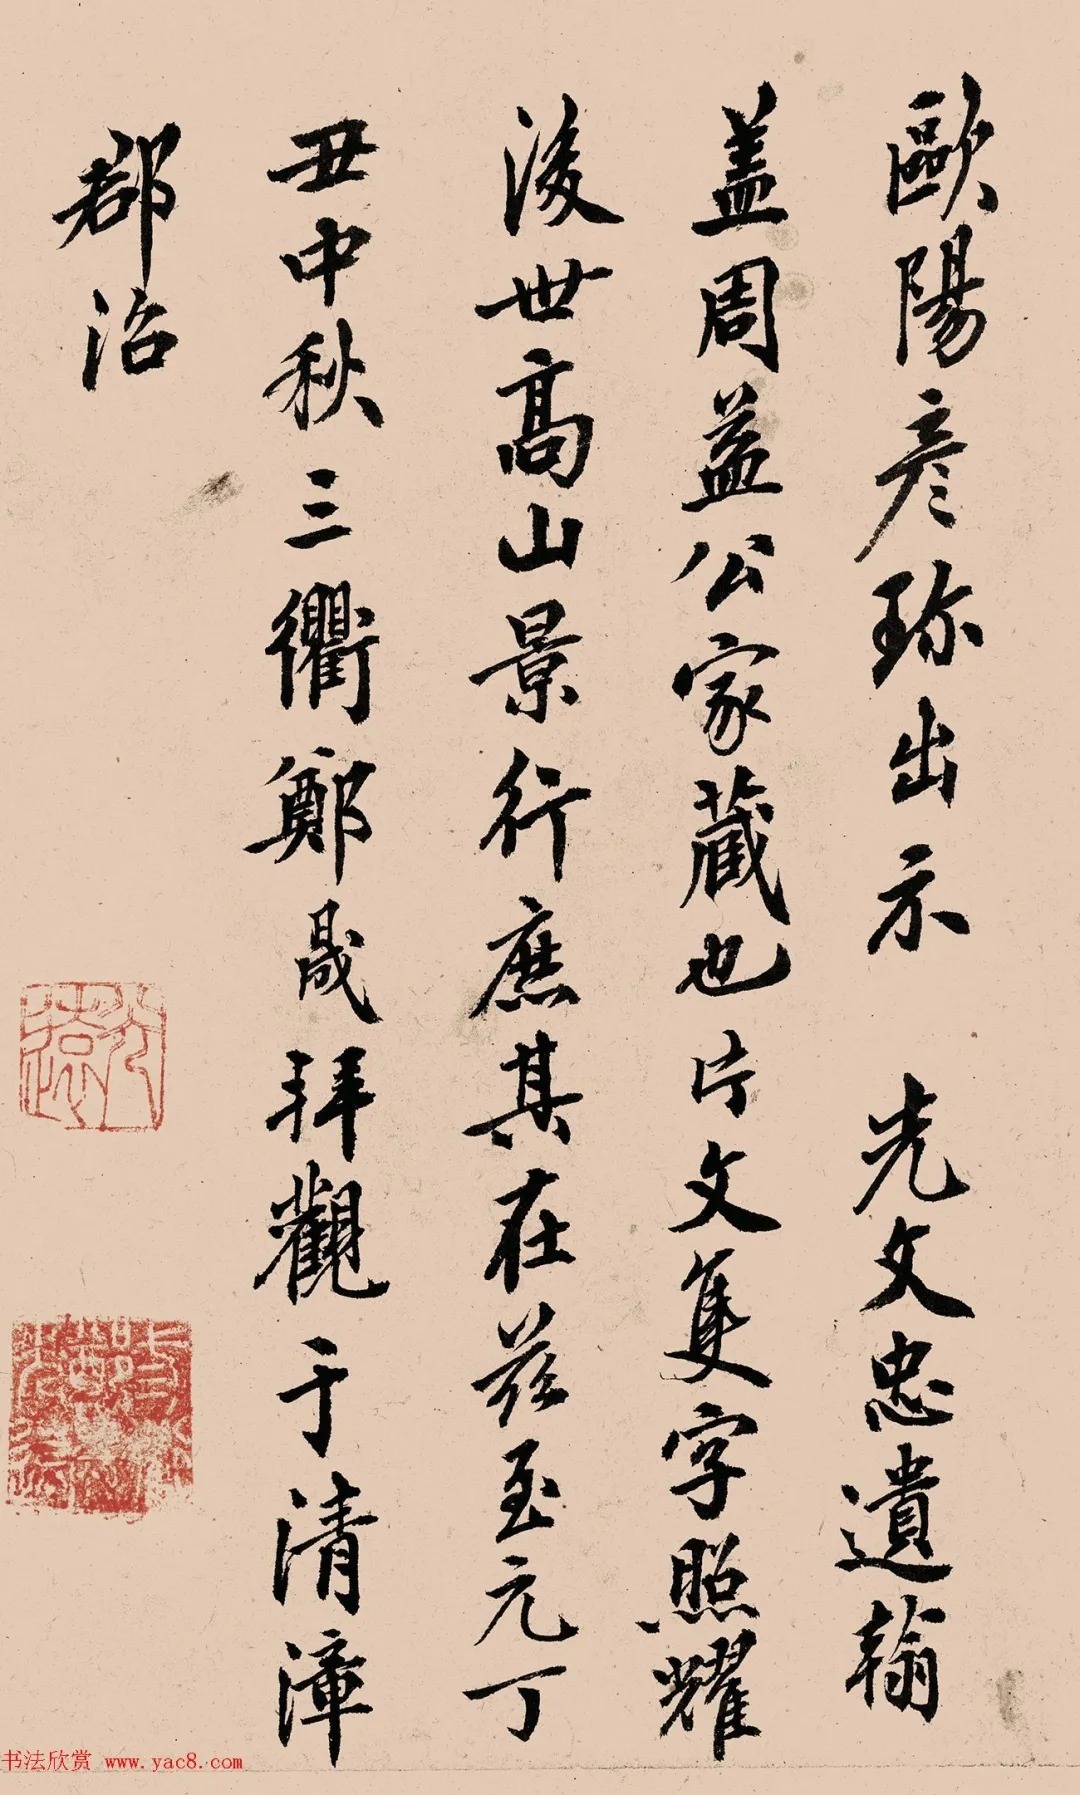 歐陽彦珎出示 先文忠遺翰
盖周益公家藏也片文隻字照耀
後世髙山景行庶其在兹至元丁
丑中秋三衢鄭晟拜觀于清漳
郡治
书法欣赏 www.yac8.com